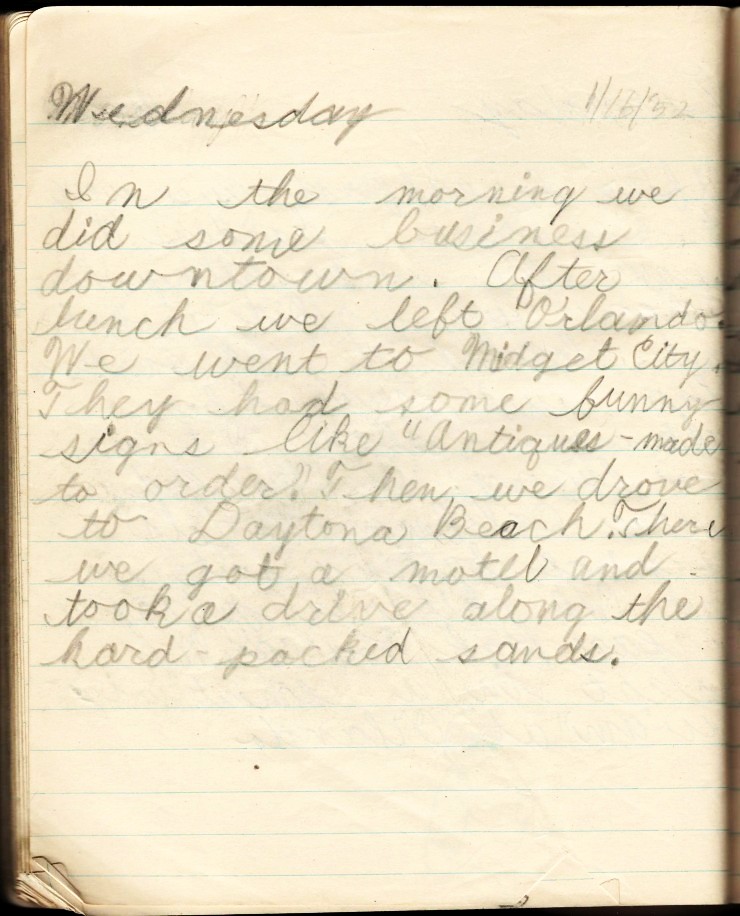 Wednesday 1/16/52
In the morning we
did some business
downtown. After
lunch we left Orlando.
We went to Midget City.
They had some funny
signs like "Antiques - made
to order." Then we drove
to Daytona Beach. There
we got a motel and
took a drive along the
hard-packed sands.